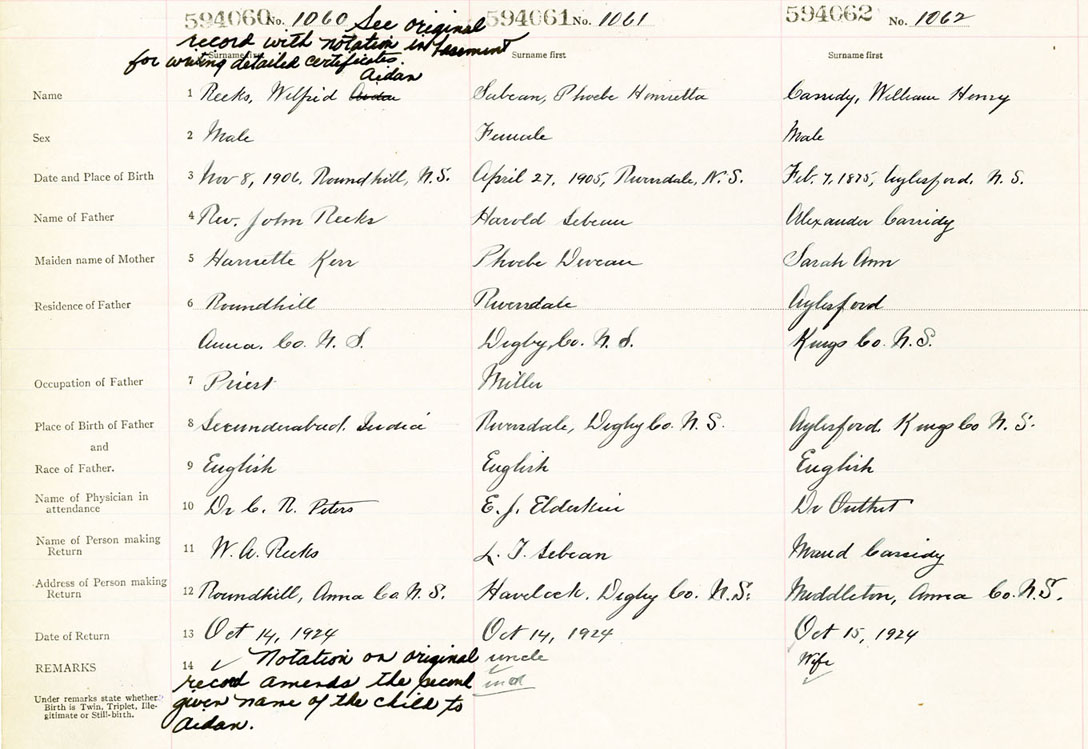 594060 No. 1060 594061 No. 1061 594062 No. 1062
See original
record with notation in basement
for writing detailed certificates.
Surname first Surname first Surname first
Aidan
Name 1 Reeks, Wilfrid Sabean, Phoebe Henrietta Cassidy, William Henry
Sex 2 Male Female Male
Date and Place of Birth 3 Nov 8, 1906, Roundhill, N.S. April 27, 1905, Riversdale, N.S. Feb. 7, 1875, Aylesford, N.S.
Name of Father 4 Rev. John Reeks Harold Sebeau Alexander Cassidy
Maiden name of Mother 5 Harriette Kerr Phoebe Deveau Sarah Ann
Residence of Father 6 Roundhill Riversdale Aylesford
Anna. Co. N.S. Digby, Co. N.S. Kings Co. N.S.
Occupation of Father 7 Priest Miller
Place of Birth of Father 8 Secunderabad, India Riversdale, Digby Co. N.S. Aylesford, Kings Co N.S.
and
Race of Father. 9 English English English
Name of Physician in
attendance 10 Dr C. R. Peters E. J. Elderkin Dr Outhit
Name of Person making
Return 11 W. A. Reeks L. T. Sebean Maud Cassidy
Address of Person making
Return 12 Roundhill, Anna Co. N.S. Havelock, Digby Co. N.S. Middleton, Anna Co. N.S.
Date of Return 13 Oct 14, 1924 Oct 14, 1924 Oct 15, 1924
REMARKS 14 Notation on original uncle Wife
record amends the second
given name of the child to
Aidan.
Under remarks state whether
Birth is Twin, Triplet, Ille-
gitimate or Still-birth.